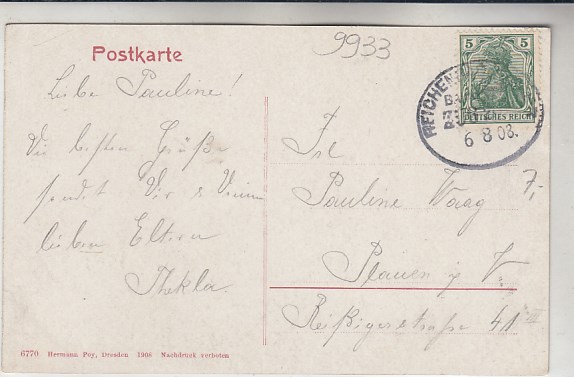 9933
Postkarte
5 5
DEUTSCHES REICH
REICHEN
BA
6 8 08.
Liebe Pauline!
Die besten Grüße
sendet Dir &
lieben Eltern
Thekla.
Frl
Pauline Waag
7,-
Plauen i. V.
Reißigerstraße 41 III
6770 Hermann Poy, Dresden 1908 Nachdruck verboten